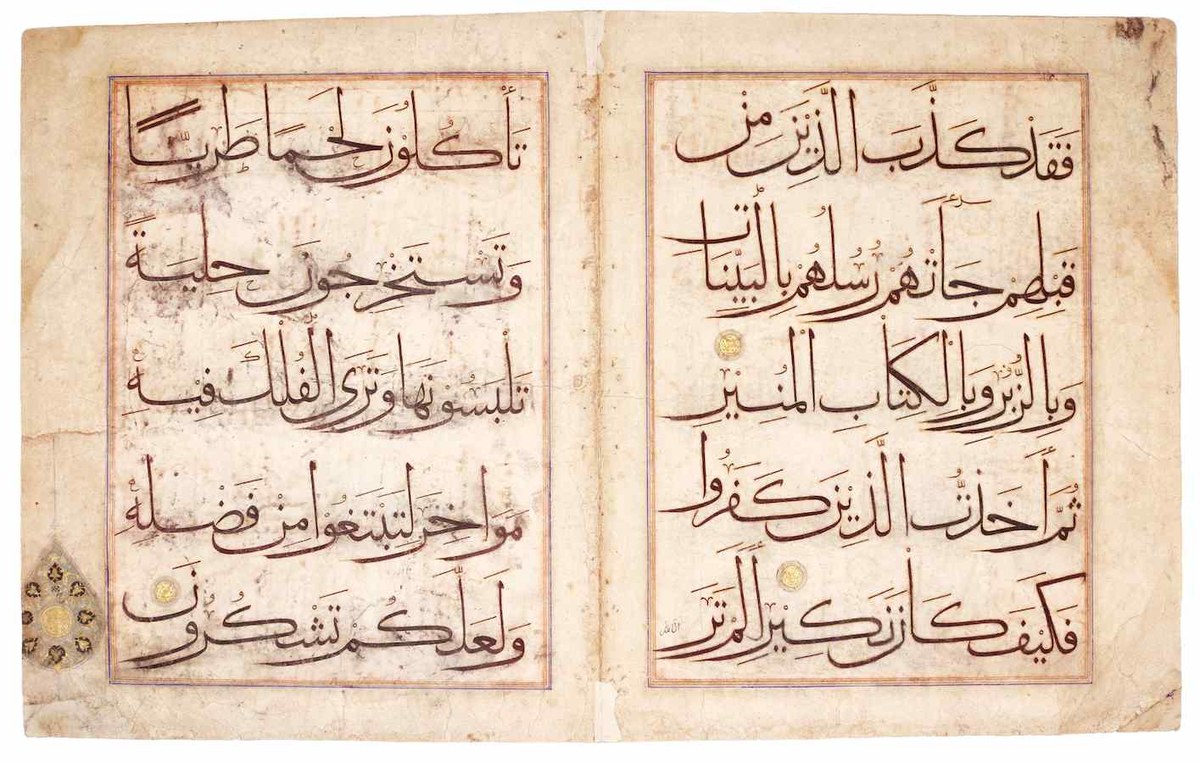 فَقَدْ كَذَّبَ الَّذِينَ مِنْ
قَبْلِهِمْ جَاَتْهُمْ رُسُلُهُمْ بِالْبَيِّنَاتِ
وَبِالزُّبُرِ وَبِالْكِتَابِ الْمُنِيرِ
ثُمَّ أَخَذْتُ الَّذِينَ كَفَرُوا
فَكَيْفَ كَانَ نَكِيرِ أَلَمْ تَرَ
تَأْكُلُونَ لَحْمًا طَرِيًّا
وَتَسْتَخْرِجُونَ حِلْيَةً
تَلْبَسُونَهَا وَتَرَى الْفُلْكَ فِيهِ
مَوَاخِرَ لِتَبْتَغُوا مِنْ فَضْلِهِ
وَلَعَلَّكُمْ تَشْكُرُونَ